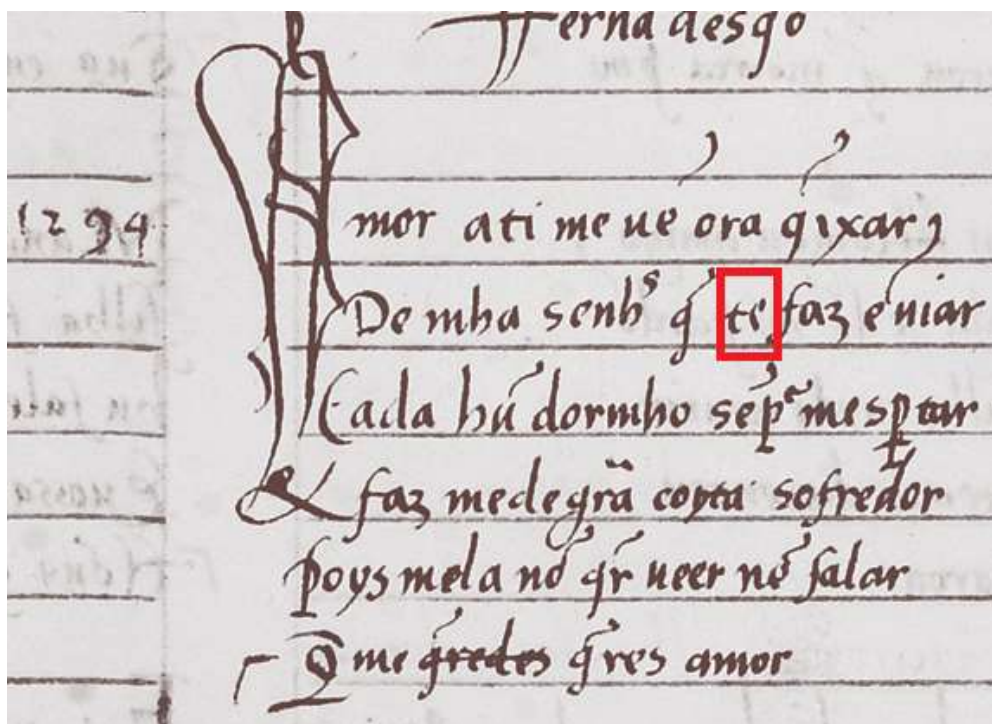 Fernã desqo
1294
Amor ati me uẽ ora qixar
De mha senhˢ q̃ te faz ẽuiar
Cada hũ dormho sẽpᵉ mespτar
E faz me de grã coyta sofredor
Poys mela nõ q̃r ueer nẽ falar
Q̃ me q̃redes q̃res amor